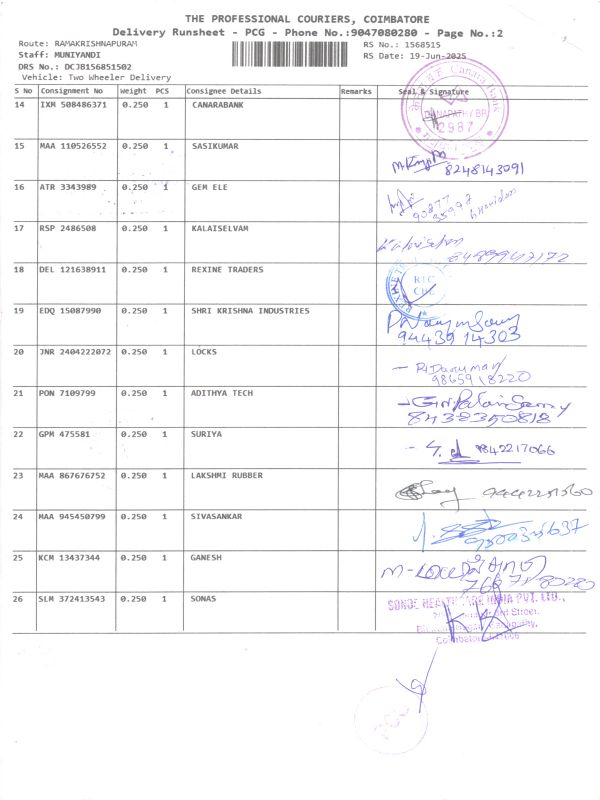 THE PROFESSIONAL COURIERS, COIMBATORE
Delivery Runsheet - PCG - Phone No.:9047080280 - Page No.:2
Route: RAMAKRISHNAPURAM
RS No.: 1568515
Staff: MUNIYANDI
RS Date: 19-Jun-2025
DRS No.: DCJB156851502
Vehicle: Two Wheeler Delivery
S No Consignment No Weight PCS Consignee Details Remarks Seal & Signature
14 IXM 508486371 0.250 1 CANARABANK
Canara Bank
2987
15 MAA 110526552 0.250 1 SASIKUMAR
8248143091
16 ATR 3343989 0.250 1 GEM ELE
17 RSP 2486508 0.250 1 KALAISELVAM
18 DEL 121638911 0.250 1 REXINE TRADERS
19 EDQ 15087990 0.250 1 SHRI KRISHNA INDUSTRIES
9443914303
20 JNR 2404222072 0.250 1 LOCKS
9865918220
21 PON 7109799 0.250 1 ADITHYA TECH
8438350818
22 GPM 475581 0.250 1 SURIYA
9842217066
23 MAA 867676752 0.250 1 LAKSHMI RUBBER
24 MAA 945450799 0.250 1 SIVASANKAR
25 KCM 13437344 0.250 1 GANESH
26 SLM 372413543 0.250 1 SONAS